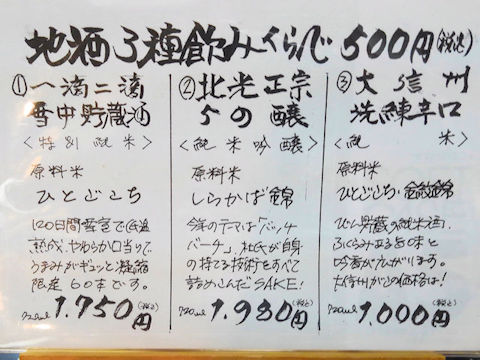 地酒3種飲みくらべ 500円(税込)
① 一滴二滴
雪中貯蔵酒
<特別純米>
原料米
ひとごこち
120日間雪室で低温
熟成、やわらか口当りで、
うまみがギュッと凝縮
限定60本です。
720ml 1.750円(税込)
② 北光正宗
の醸
<純米吟醸>
原料米
しらかば錦
今年のテーマは「バック
バーチ」、杜氏が自身
の持てる技術をすべて
詰めこんだSAKE!
720ml 1.980円(税込)
③ 大信州
洗練辛口
<純米>
原料米
ひとごこち・金紋錦
びん貯蔵の純米酒、
ふくらみある旨味と
吟香が広がります。
大信州がこの価格は!
720ml 1.000円(税込)